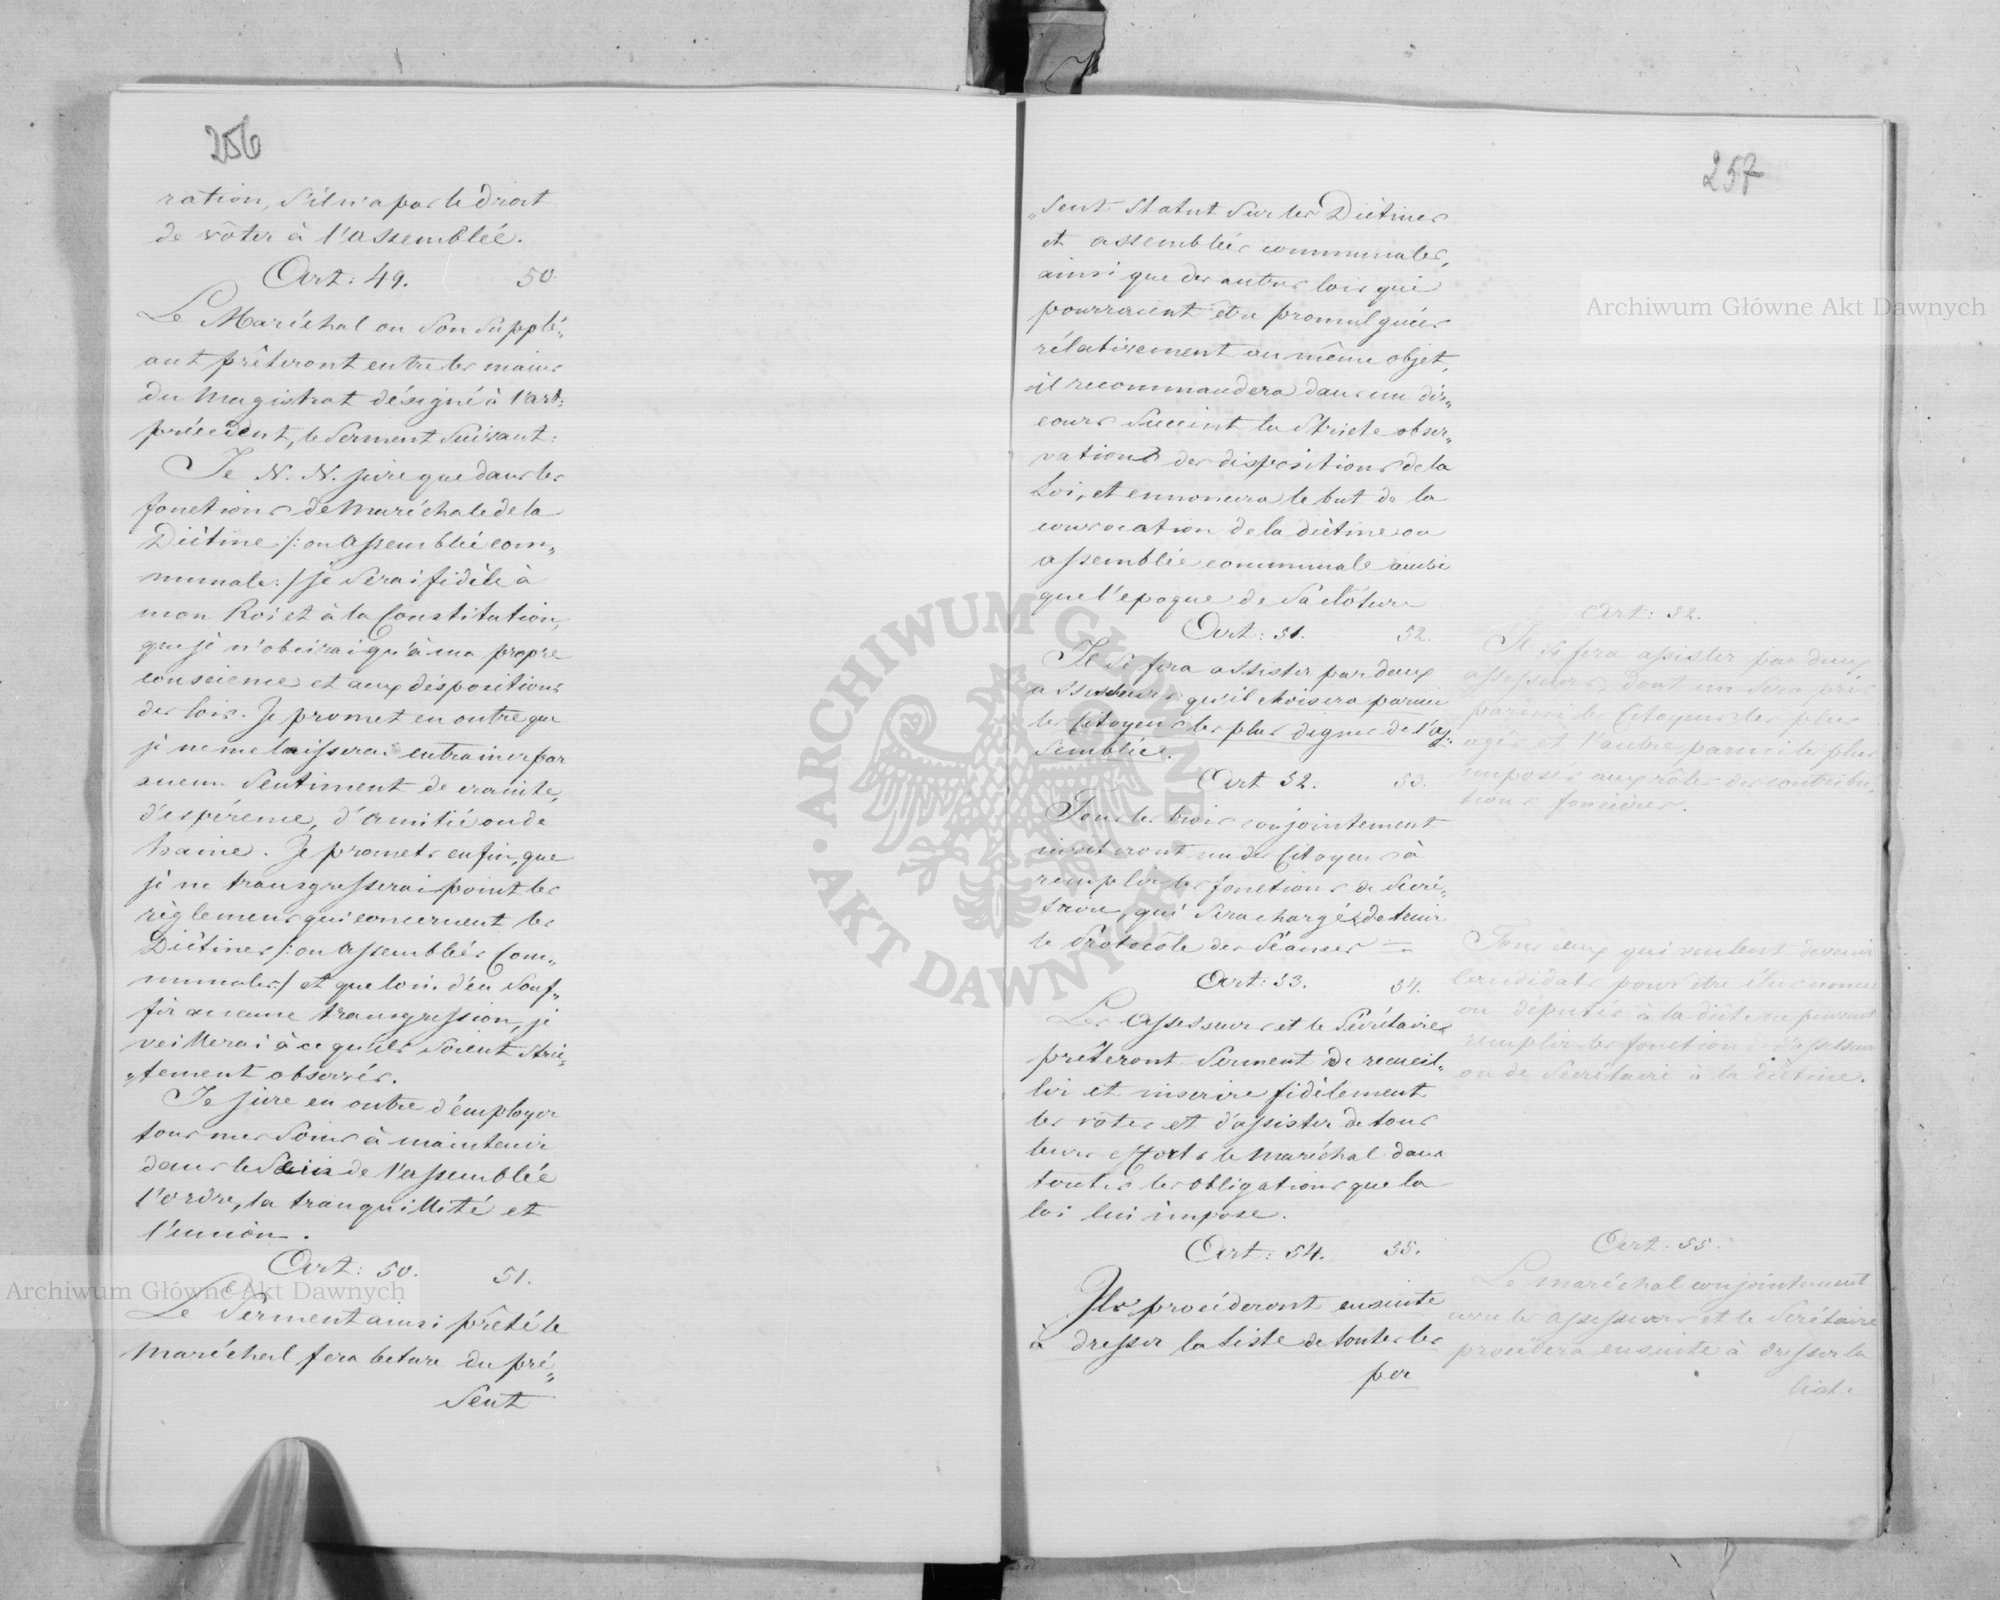 256
ration, s'il n'a pas le droit
de vôter à l'assemblée.
Art: 49. 50.
Le Maréchal ou Son Supplé„
ant prêteront entre les mains
du Magistrat désigné à l'art:
précédent, le Serment Suivant:
Je N. N. jure que dans les
fonctions de Maréchale de la
Diétine /: ou Assemblée com„
munale :/ je Serai fidèle à
mon Roi et à la Constitution,
que je n'obeirai qu'à ma propre
conscience et aux dispositions
des lois. Je promet en outre que
je ne me laisserai entrainer par
aucun Sentiment de crainte,
d'espérence, d'amitié ou de
haine. Je promets enfin, que
je ne transgresserai point les
règlemens qui concernent les
Diétines /: ou Assemblées Com„
munales:/ et que loin d'en Souf„
frir aucune transgression, je
veillerai à ce qu'ils soient stric„
„tement observés.
Je jure en outre d'employer
tous mes Soins à maintenir
dans le Sein de l'assemblée
l'ordre, la tranquillité et
l'union.
Art: 50. 51.
Le Serment ainsi prêté le
Maréchal fera lecture du pré„
Sent
257
„sent Statut Sur les Diétines
et assemblées communales,
ainsi que des autres lois qui
pourraient être promulguées
rélativement au même objet,
il recommandera dans un dis„
cours Succint la Stricte obser„
vation des dispositions de la
Loi, et ennoncera le but de la
convocation de la diétine ou
assemblée communale ainsi
que l'epoque de Sa clôture
Art: 51. 52.
Il Se fera assister par deux
assesseurs qu'il choisira parmi
les Citoyens les plus dignes de l'as„
semblée.
Art 52. 53.
Tous les trois conjointement
inviteront un des Citoyens à
remplir les fonctions de Secré„
taire, qui Sera chargé de tenir
le Protocôle des Séances =
Art: 53. 54.
Les Assesseurs et le Sécrétaire
prêteront Serment de recueil„
lir et inscrire fidèlement
les vôtes et d'assister de tous
leurs efforts le Maréchal dans
toutes les obligations que la
loi lui impose.
Art: 54. 55.
Ils procéderont ensuite
à dresser la liste de toutes les
per
Art: 52.
Il Se fera assister par deux
assesseurs, dont un Sera pris
parmi les Citoyens les plus
agés et l'autre parmi les plus
imposés aux rôles des contribu„
tions foncières.
Tous ceux qui veulent devenir
Candidats pour etre élus nonces
ou députés à la diète ne peuvent
remplir les fonctions d'assesseur
ou de Secrétaire à la diétine.
Art: 55.
Le maréchal conjointement
avec les assesseurs et le Sécrétaire
procédera ensuite à dresser la
liste
Archiwum Główne Akt Dawnych
Archiwum Główne Akt Dawnych
ARCHIWUM GŁÓWNE · AKT DAWNYCH